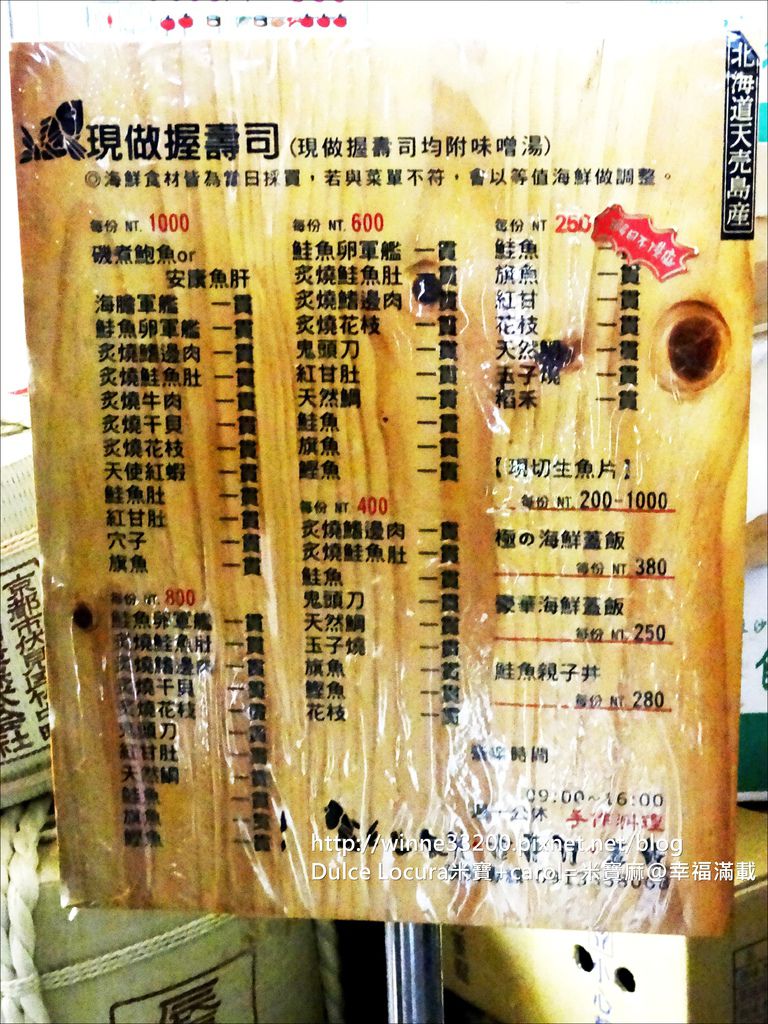 北海道天売島産
現做握壽司(現做握壽司均附味噌湯)
◎海鮮食材皆為當日採買，若與菜單不符，會以等值海鮮做調整。
每份 NT. 1000
磯煮鮑魚or
安康魚肝
海膽軍艦 一貫
鮭魚卵軍艦 一貫
炙燒鰭邊肉 一貫
炙燒鮭魚肚 一貫
炙燒牛肉 一貫
炙燒干貝 一貫
炙燒花枝 一貫
天使紅蝦 一貫
鮭魚肚 一貫
紅甘肚 一貫
穴子 一貫
旗魚 一貫
每份 NT. 800
鮭魚卵軍艦 一貫
炙燒鮭魚肚 一貫
炙燒鰭邊肉 一貫
炙燒干貝 一貫
炙燒花枝 一貫
鬼頭刀 一貫
紅甘肚 一貫
天然鯛 一貫
鮭魚 一貫
旗魚 一貫
鰹魚 一貫
每份 NT. 600
鮭魚卵軍艦 一貫
炙燒鮭魚肚 一貫
炙燒鰭邊肉 一貫
炙燒花枝 一貫
鬼頭刀 一貫
紅甘肚 一貫
天然鯛 一貫
鮭魚 一貫
旗魚 一貫
鰹魚 一貫
每份 NT. 400
炙燒鰭邊肉 一貫
炙燒鮭魚肚 一貫
鮭魚 一貫
鬼頭刀 一貫
天然鯛 一貫
玉子燒 一貫
旗魚 一貫
鰹魚 一貫
花枝 一貫
每份 NT. 250
鮭魚 一貫
旗魚 一貫
紅甘 一貫
花枝 一貫
天然鯛 一貫
玉子燒 一貫
稻禾 一貫
【現切生魚片】
每份 NT. 200-1000
極の海鮮蓋飯
每份 NT. 380
豪華海鮮蓋飯
每份 NT. 250
鮭魚親子丼
每份 NT. 280
營業時間
09:00~16:00
週一公休 手作料理
http://winne33200.pixnet.net/blog
Dulce Locura米寶+carol=米寶麻@幸福滿載